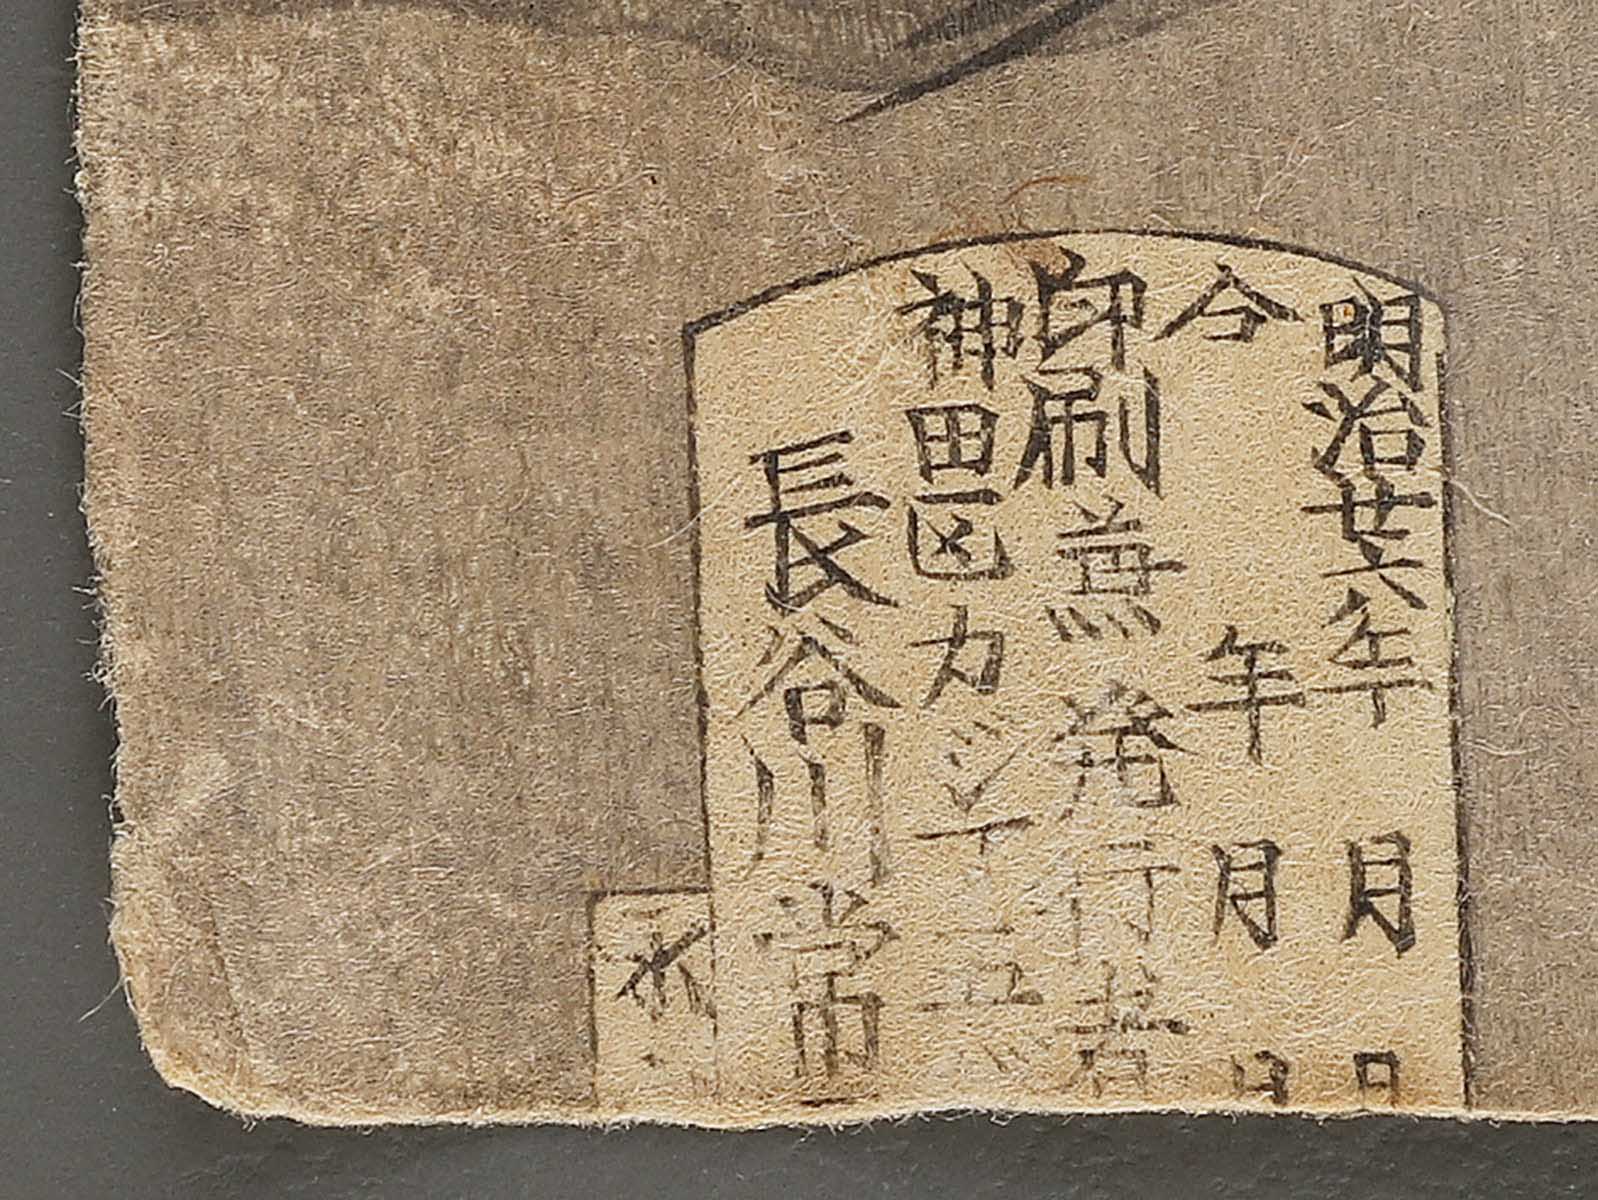 明治廿六年月日
仝年月日
印刷兼発行者
神田区カジ丁二
長谷川常